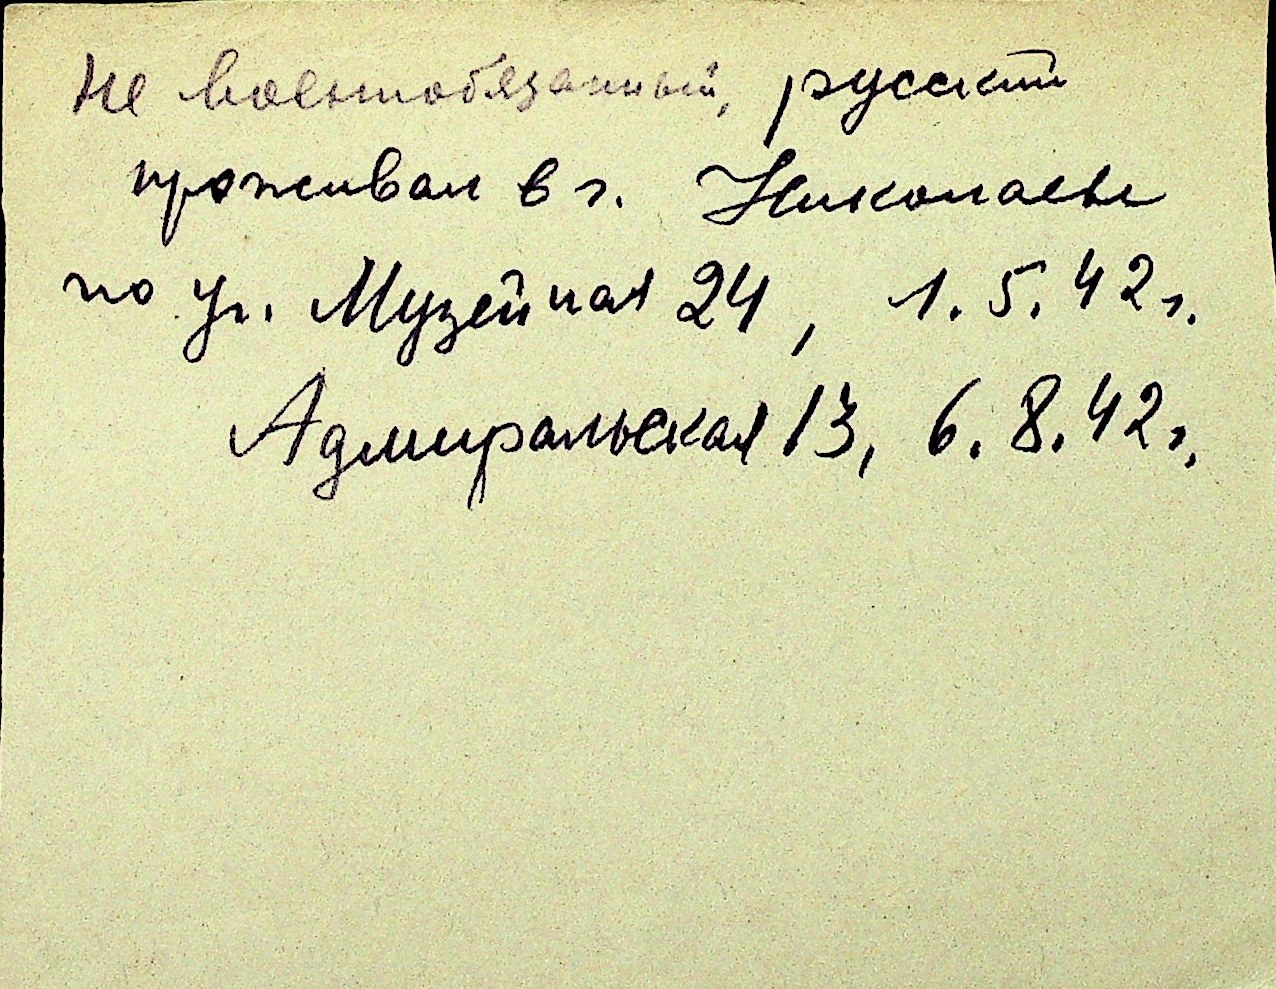 Не военнообязанный, русский
проживал в г. Николаеве
по ул. Музейная 24, 1.5.42 г.
Адмиральская 13, 6.8.42 г.